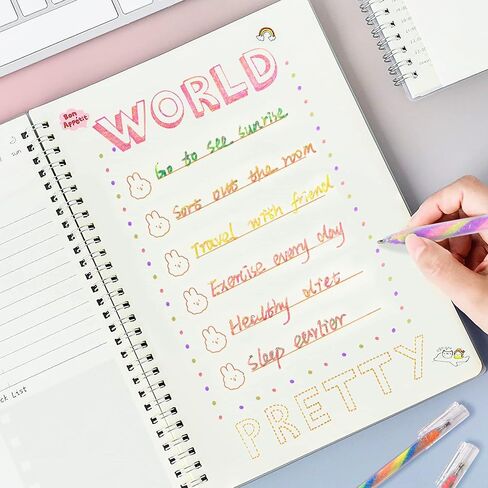 Bon
Appetit
WORLD
Go to see sunrise
Sort out the room
Travel with friend
Exercise every day
Healthy diet
Sleep earlier
PRETTY
sun
ck List